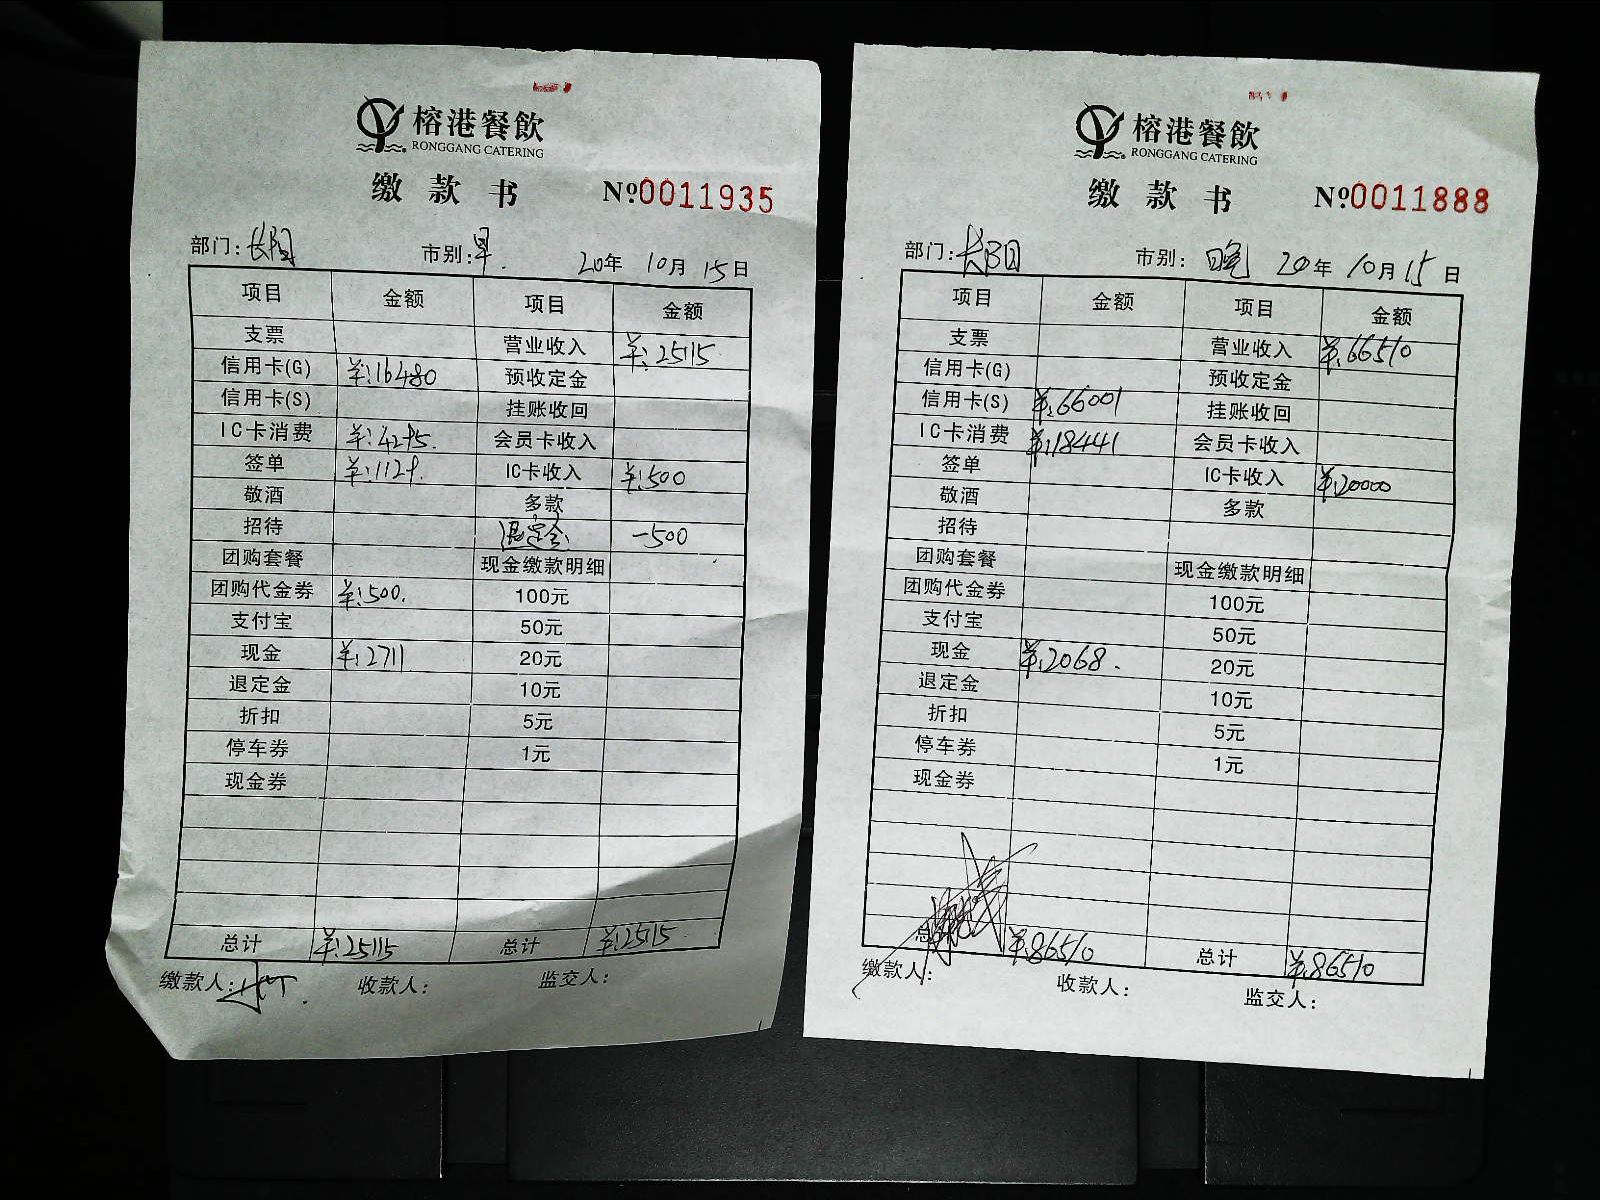 榕港餐飲
RONGGANG CATERING
缴款书 №0011935
部门:长阳 市别:早. 20年 10月 15日
项目 金额 项目 金额
支票 营业收入 ¥:25115
信用卡(G) ¥:16480 预收定金
信用卡(S) 挂账收回
IC卡消费 ¥:4295. 会员卡收入
签单 ¥:1129. IC卡收入 ¥:500
敬酒 多款
招待 退定金 -500
团购套餐 现金缴款明细
团购代金券 ¥:500. 100元
支付宝 50元
现金 ¥:2711 20元
退定金 10元
折扣 5元
停车券 1元
现金券
总计 ¥:25115 总计 ¥:25115
缴款人: 收款人: 监交人:
榕港餐飲
RONGGANG CATERING
缴款书 №0011888
部门:长阳 市别:晚 20年 10月 15日
项目 金额 项目 金额
支票 营业收入 ¥:66510
信用卡(G) 预收定金
信用卡(S) ¥:66001 挂账收回
IC卡消费 ¥:18441 会员卡收入
签单 IC卡收入 ¥:20000
敬酒 多款
招待
团购套餐 现金缴款明细
团购代金券 100元
支付宝 50元
现金 ¥:2068. 20元
退定金 10元
折扣 5元
停车券 1元
现金券
总 ¥:86510 总计 ¥:86510
缴款人: 收款人: 监交人: